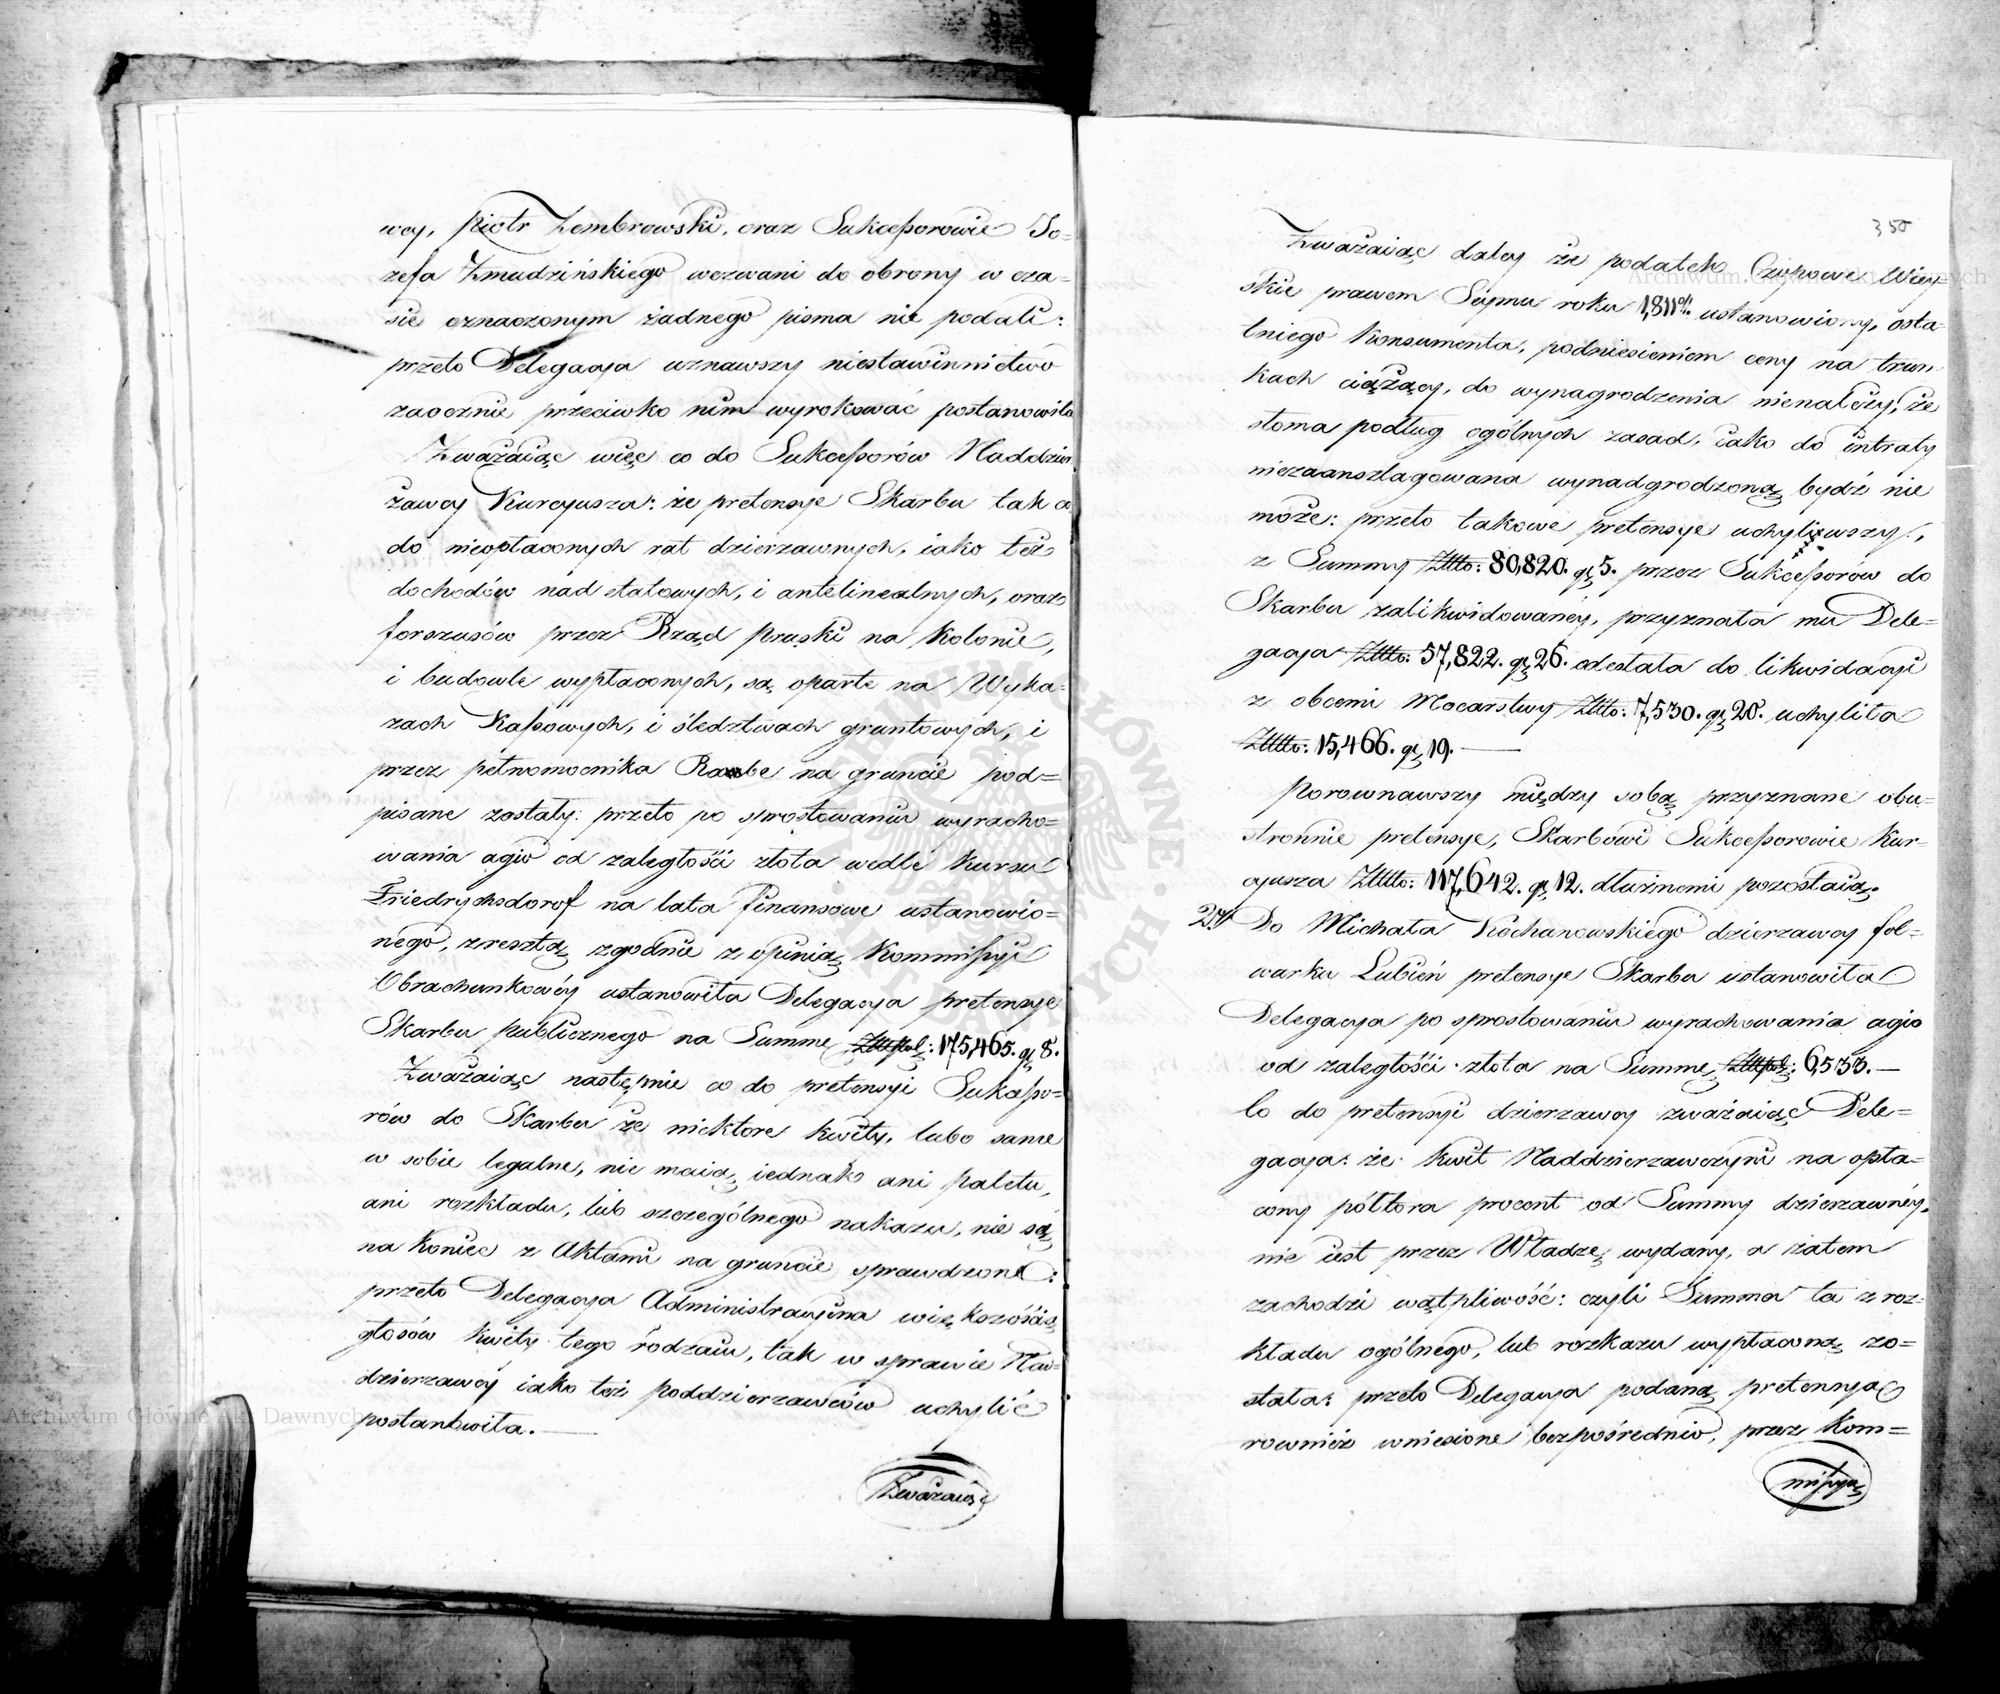 wcy, Piotr Zembrowski, oraz Sukceßorowie Jo=
zefa Zmudzińskiego wezwani do obrony w cza=
sie oznaczonym żadnego pisma nie podali:
przeto Delegacya uznawszy niestawinnictwo
zaocznie przeciwko nim wyrokować postanowiła
Zważaiąc więc co do Sukceßorów Naddzier
żawcy Kurcyusza: że pretensye Skarbu tak co
do nieopłaconych rat dzierzawnych, iako też
dochodów nad etatowych, i antelinealnych, oraz
forszusów przez Rząd Pruski na Kolonie,
i budowle wypłaconych, są oparte na Wyka=
zach Kaßowych, i śledztwach gruntowych, i
przez pełnomocnika Raabe na gruncie pod=
pisane zostały: przeto po sprostowaniu wyracho=
wania agio od zaległości złota wedle Kursu
Friedrychsdorof na lata finansowe ustanowio=
nego, zresztą zgodnie z opinią Kommißyi
Obrachunkowéy ustanowiła Delegacya pretensye
Skarbu publicznego na Summę Złłpol: 175,465. gr 8.
Zważaiąc następnie co do pretensyi Sukceßo=
rów do Skarbu że niektore kwity, lubo same
w sobie legalne, nie maią iednak ani paletu,
ani rozkładu, lub szczególnego nakazu, nie są
na koniec z Aktami na gruncie sprawdzone:
przeto Delegacya Administracyina większością
głosów kwity tego rodzaiu, tak w sprawie Nad=
dzierzawcy iako też poddzierzawców uchylić
postanowiła.
Zważaiąc
350
Zważaiąc daley że podatek Czopowe Wiey=
skie prawem Seymu roku 1,811o. ustanowiony, osta=
tniego Konsumenta, podniesieniem ceny na trun=
kach ciążący, do wynagrodzenia nienależy, że
słoma podług ogólnych zasad, iako do intraty
niezaanszlagowana wynadgrodzoną bydź nie
może: przeto takowe pretensye uchyliwszy,
z Summy Złłto: 80,820. gr 5. przez Sukceßorów do
Skarbu zalikwidowanéy, przyznała mu Dele=
gacya Złłto: 57,822. gr 26. odesłała do likwidacyi
z obcemi Mocarstwy Złłto: 7,530. gr 20. uchyliła
Złłto: 15,466. gr 19.
Porownawszy między sobą przyznane obu=
stronnie pretensye, Skarbowi Sukceßorowie Kur=
cyusza Złłto: 117,642. gr 12. dłużnemi pozostaią.
Do Michała Kochanowskiego dzierzawcy fol=
warku Lubień pretensye Skarbu ustanowiła
Delegacya po sprostowaniu wyrachowania agio
od zaległości złota na Summę Złłpol: 6,533.
Co do pretensyi dzierzawcy zważaiąc Dele=
gacya: że kwit Naddzierzawczyni na opła=
cony półtora procent od Summy dzierzawnéy,
nie iest przez Władzę wydany, a zatem
zachodzi wątpliwość: czyli Summa ta z roz=
kładu ogólnego, lub rozkazu wypłaconą zo=
stała: przeto Delegacya podaną pretensyę
rownież wniesione bezpośrednio, przez Kom=
mißyą
Archiwum Główne Akt Dawnych
Archiwum Główne Akt Dawnych
ARCHIWUM GŁÓWNE AKT DAWNYCH